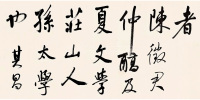 者
陳徵君
仲醇及
夏文學
莊山人
孫太學
也 其昌